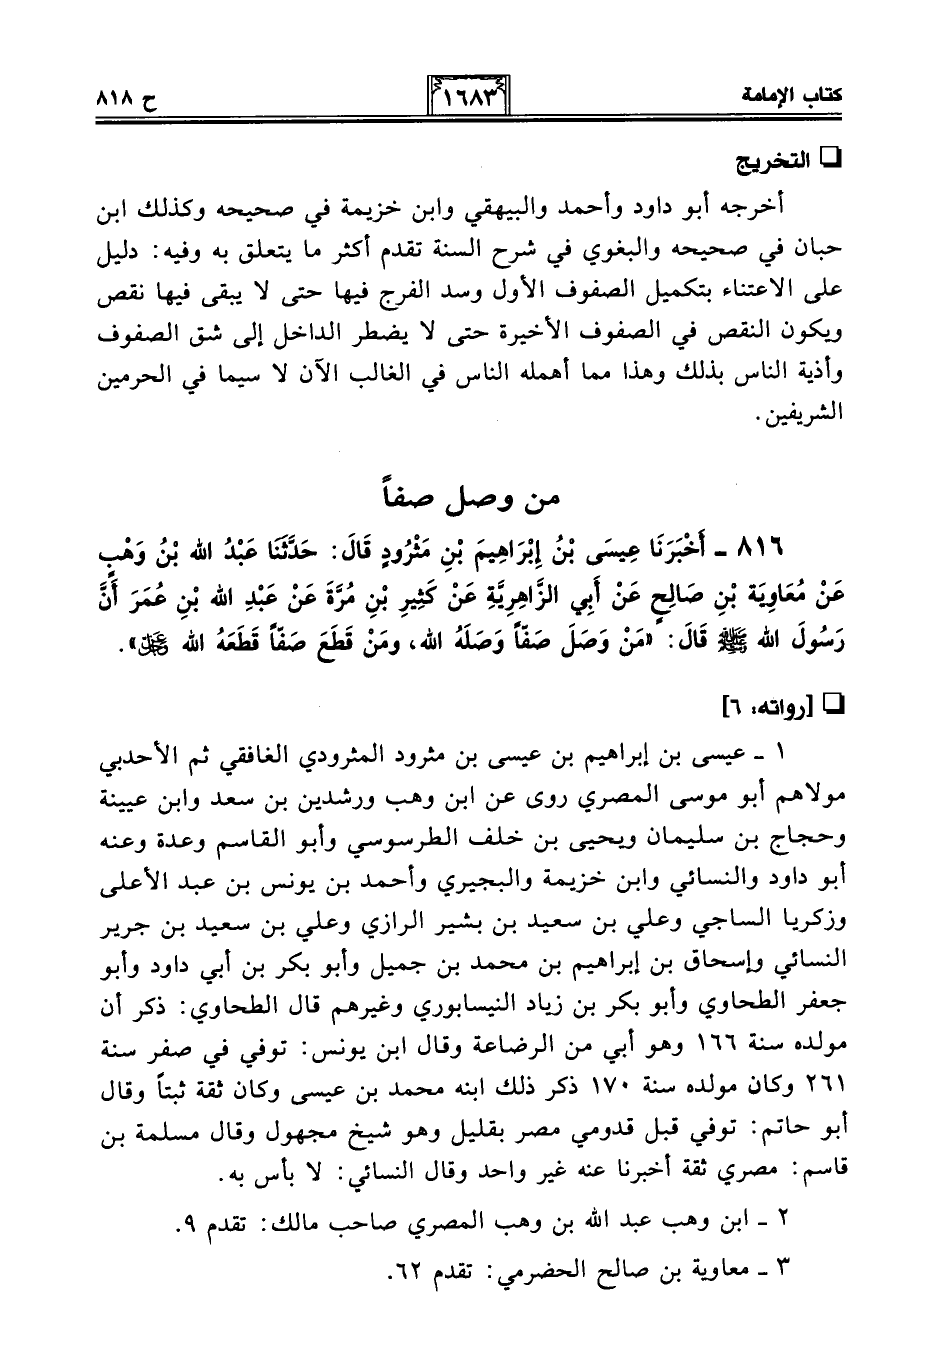 كتاب الإمامة ١٦٨٣ ح ٨١٨
❑ التخريج
أخرجه أبو داود وأحمد والبيهقي وابن خزيمة في صحيحه وكذلك ابن
حبان في صحيحه والبغوي في شرح السنة تقدم أكثر ما يتعلق به وفيه: دليل
على الاعتناء بتكميل الصفوف الأول وسد الفرج فيها حتى لا يبقى فيها نقص
ويكون النقص في الصفوف الأخيرة حتى لا يضطر الداخل إلى شق الصفوف
وأذية الناس بذلك وهذا مما أهمله الناس في الغالب الآن لا سيما في الحرمين
الشريفين.
من وصل صفاً
٨١٦ ـ أَخْبَرَنَا عِيسَى بْنُ إِبْرَاهِيمَ بْنِ مَثْرُودٍ قَالَ: حَدَّثَنَا عَبْدُ الله بْنُ وَهْبٍ
عَنْ مُعَاوِيَة بْنِ صَالِحٍ عَنْ أَبِي الزَّاهِرِيَّةِ عَنْ كَثِيرِ بْنِ مُرَّةَ عَنْ عَبْدِ الله بْنِ عُمَرَ أَنَّ
رَسُولَ الله ﷺ قَالَ: «مَنْ وَصَلَ صَفّاً وَصَلَهُ الله، ومَنْ قَطَعَ صَفّاً قَطَعَهُ الله ﷿».
❑ [رواته: ٦]
١ ـ عيسى بن إبراهيم بن عيسى بن مثرود المثرودي الغافقي ثم الأحدبي
مولاهم أبو موسى المصري روى عن ابن وهب ورشدين بن سعد وابن عيينة
وحجاج بن سليمان ويحيى بن خلف الطرسوسي وأبو القاسم وعدة وعنه
أبو داود والنسائي وابن خزيمة والبجيري وأحمد بن يونس بن عبد الأعلى
وزكريا الساجي وعلي بن سعيد بن بشير الرازي وعلي بن سعيد بن جرير
النسائي وإسحاق بن إبراهيم بن محمد بن جميل وأبو بكر بن أبي داود وأبو
جعفر الطحاوي وأبو بكر بن زياد النيسابوري وغيرهم قال الطحاوي: ذكر أن
مولده سنة ١٦٦ وهو أبي من الرضاعة وقال ابن يونس: توفي في صفر سنة
٢٦١ وكان مولده سنة ١٧٠ ذكر ذلك ابنه محمد بن عيسى وكان ثقة ثبتاً وقال
أبو حاتم: توفي قبل قدومي مصر بقليل وهو شيخ مجهول وقال مسلمة بن
قاسم: مصري ثقة أخبرنا عنه غير واحد وقال النسائي: لا بأس به.
٢ ـ ابن وهب عبد الله بن وهب المصري صاحب مالك: تقدم ٩.
٣ ـ معاوية بن صالح الحضرمي: تقدم ٦٢.